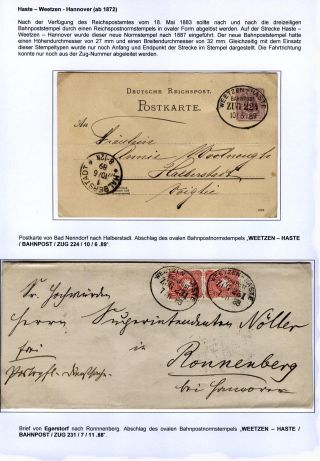 Haste – Weetzen - Hannover (ab 1872)
Nach der Verfügung des Reichspostamtes vom 18. Mai 1883 sollte nach und nach die dreizeiligen
Bahnpoststempel durch einen Reichspostnormstempels in ovaler Form abgelöst werden. Auf der Strecke Haste –
Weetzen – Hannover wurde dieser neue Normstempel nach 1887 eingeführt. Der neue Bahnpoststempel hatte
einen Höhendurchmesser von 27 mm und einen Breitendurchmesser von 32 mm. Gleichzeitig mit dem Einsatz
dieser Stempeltypen wurde nur noch Anfang und Endpunkt der Strecke im Stempel dargestellt. Die Fahrtrichtung
konnte nur noch aus der Zug-Nummer abgeleitet werden.
WEETZEN - HASTE
BAHNPOST
ZUG 224
10/6 89
DEUTSCHE REICHSPOST.
POSTKARTE.
An
Fräulein
Annie
Halberstadt
Voigtei
HALBERSTADT
10/6
89
8-12N
Postkarte von Bad Nenndorf nach Halberstadt. Abschlag des ovalen Bahnpostnormstempels „WEETZEN – HASTE
/ BAHNPOST / ZUG 224 / 10 / 6 .89“.
WEETZEN - HASTE
Sr. Hochwürden
Herrn Superintendenten Nöller
frei
in
Ronnenberg
bei Hannover
Brief von Egerstorf nach Ronnnenberg. Abschlag des ovalen Bahnpostnormstempels „WEETZEN – HASTE /
BAHNPOST / ZUG 231 / 7 / 11 .88“